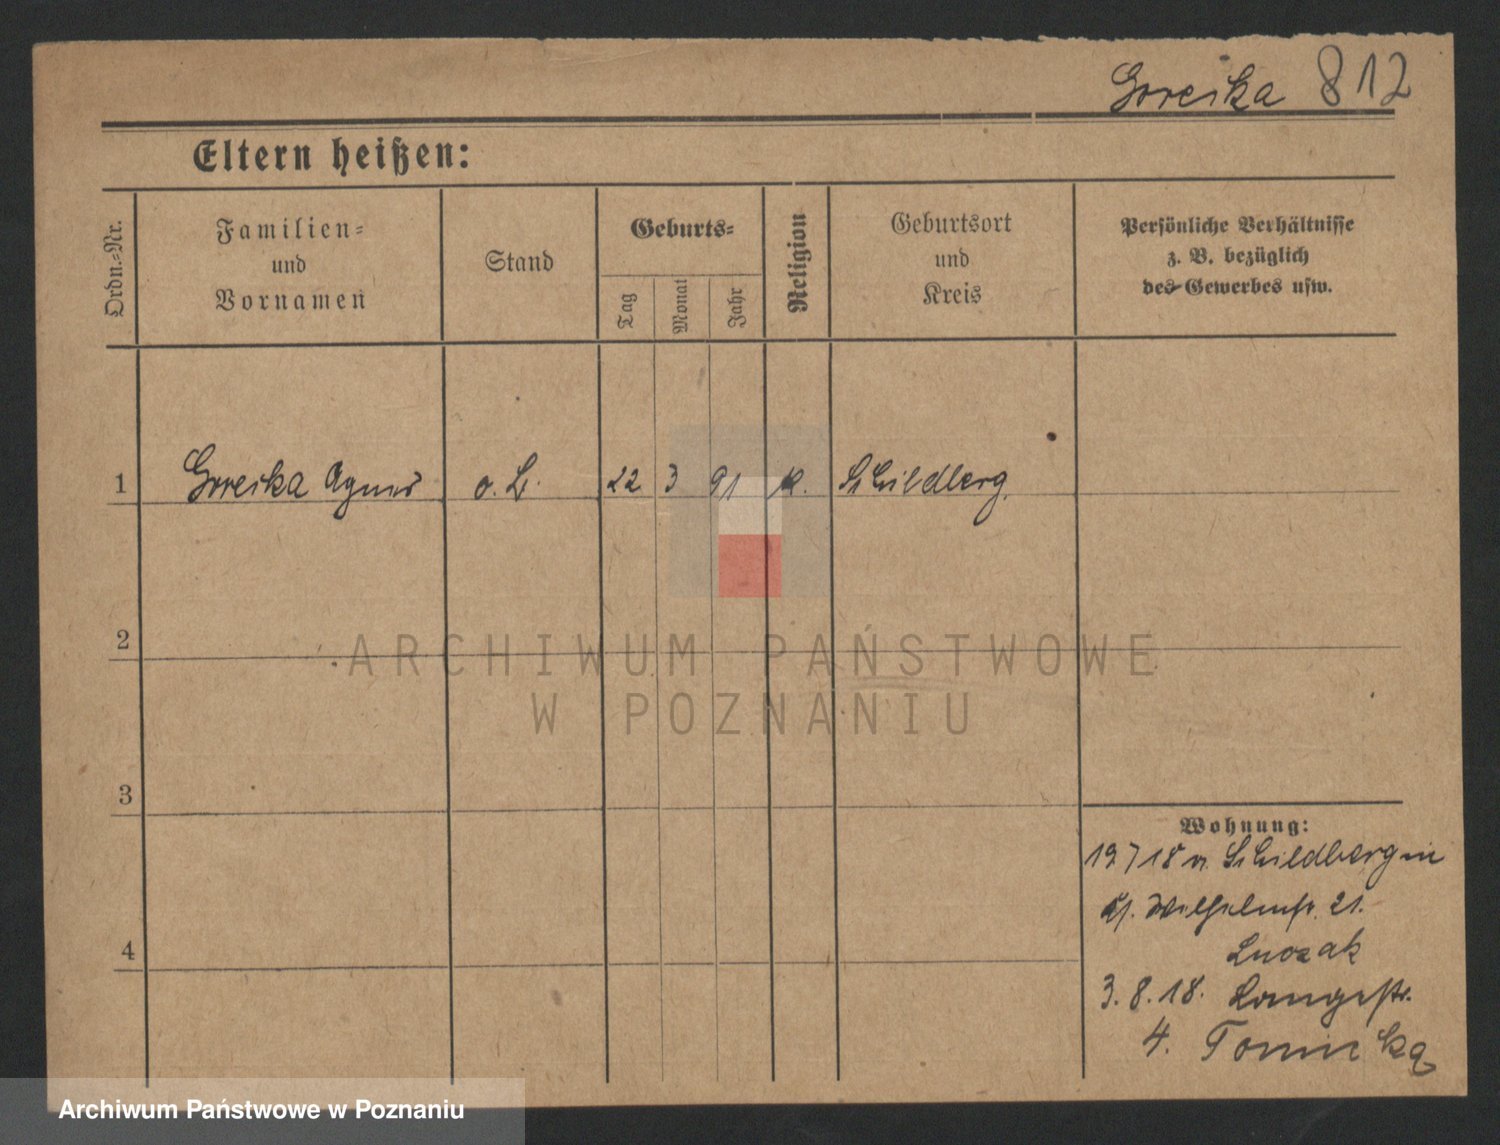 Goreska 812
Eltern heißen:
Ordn.-Nr.
Familien-
und
Vornamen
Stand
Geburts-
Tag
Monat
Jahr
Religion
Geburtsort
und
Kreis
Persönliche Verhältnisse
z. B. bezüglich
des Gewerbes usw.
1 Goreska Agnes o. B. 22 3 91 k. Schildberg
2
3
4
Wohnung:
19 7 18 v. Schildberg in
Wilhelmstr. 21.
3.8.18. Langestr.
4.
ARCHIWUM PAŃSTWOWE
W POZNANIU
Archiwum Państwowe w Poznaniu